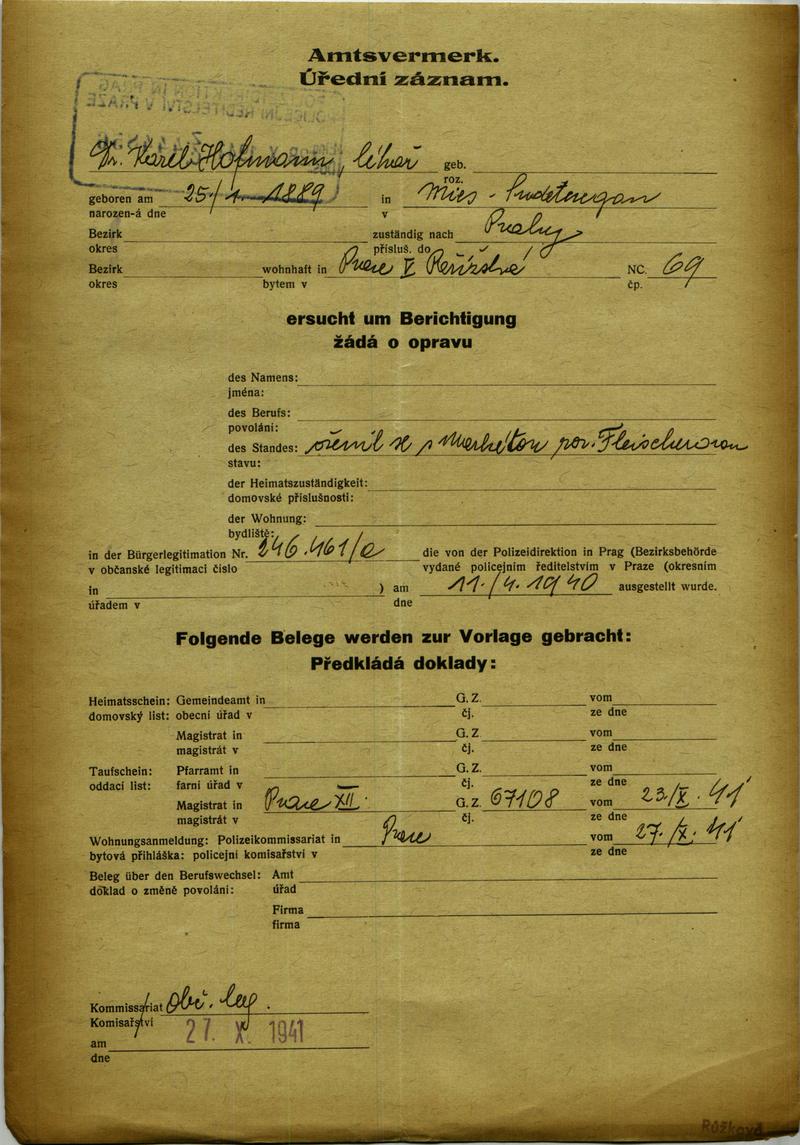 Amtsvermerk.
Úřední záznam.
Dr. Karel Hofmann, lékař geb.
roz.
geboren am 25/ 1. 1889 in Mies - Sudetengau
narozen-á dne v
Bezirk zuständig nach Prahy
okres přísluš. do
Bezirk wohnhaft in Prag V NC. 69
okres bytem v čp.
ersucht um Berichtigung
žádá o opravu
des Namens:
jména:
des Berufs:
povolání:
des Standes: oženil se s Markétou roz. Fleischerovou
stavu:
der Heimatszuständigkeit:
domovské příslušnosti:
der Wohnung:
bydliště:
in der Bürgerlegitimation Nr. 246.461/ die von der Polizeidirektion in Prag (Bezirksbehörde
v občanské legitimaci číslo vydané policejním ředitelstvím v Praze (okresním
in ) am 11./4. 1940 ausgestellt wurde.
úřadem v dne
Folgende Belege werden zur Vorlage gebracht:
Předkládá doklady:
Heimatsschein: Gemeindeamt in G. Z. vom
domovský list: obecní úřad v čj. ze dne
Magistrat in G. Z vom
magistrát v čj. ze dne
Taufschein: Pfarramt in G. Z. vom
oddací list: farní úřad v čj. ze dne
Magistrat in XII. G. Z. 67108 vom 23./X. 41
magistrát v čj. ze dne
Wohnungsanmeldung: Polizeikommissariat in vom 27./X. 41
bytová přihláška: policejní komisařství v ze dne
Beleg über den Berufswechsel: Amt
doklad o změně povolání: úřad
Firma
firma
Kommissariat Obč. leg.
Komisařství
am 27. X. 1941
dne
Růžková